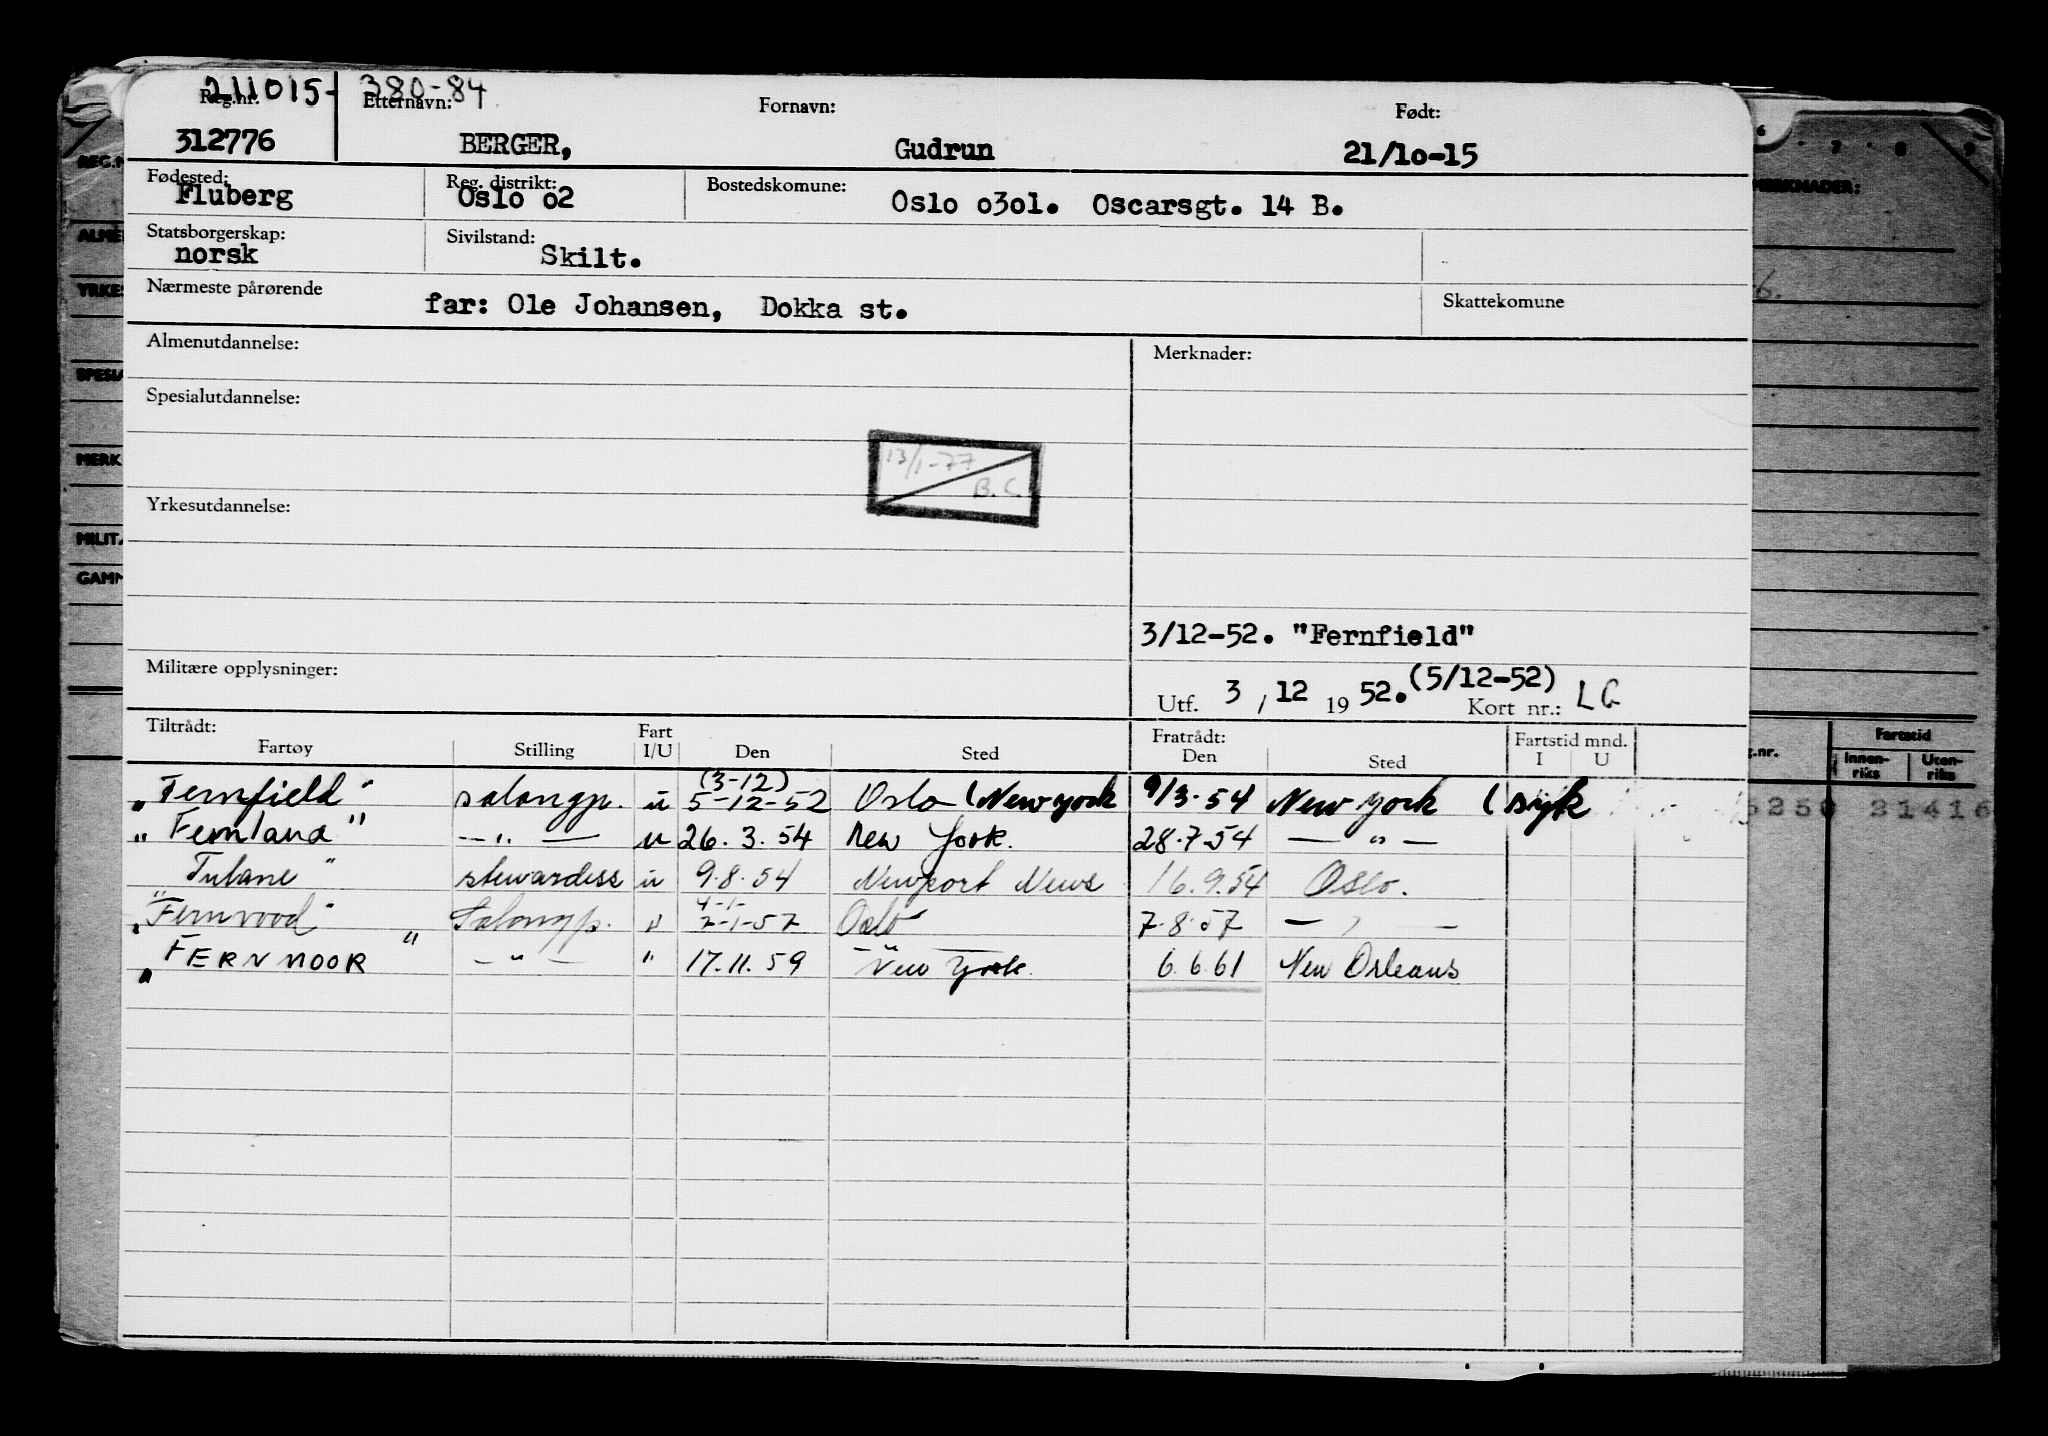 211015- 380-84
Reg.nr. Etternavn: Fornavn: Født:
312776 BERGER, Gudrun 21/10-15
Fødested: Reg. distrikt: Bostedskomune:
Fluberg Oslo o2 Oslo o3o1. Oscarsgt. 14 B.
Statsborgerskap: Sivilstand:
norsk Skilt.
Nærmeste pårørende Skattekomune
far: Ole Johansen, Dokka st.
Almenutdannelse: Merknader:
Spesialutdannelse:
13/1-77
B.C.
Yrkesutdannelse:
3/12-52. "Fernfield"
Militære opplysninger:
Utf. 3 / 12 19 52. (5/12-52) Kort nr.: LG
Tiltrådt: Fart Fratrådt: Fartstid mnd.
Fartøy Stilling I/U Den Sted Den Sted I U
(3-12)
"Fernfield" salongp. u 5-12-52 Oslo (New York 9/3-54 New York (syk
"Fernland" —"— u 26.3.54 New York. 28.7.54 —"—
"Tulane" stewardess u 9.8.54 Newport News 16.9.54 Oslo.
4-1-
"Fernwood" Salongp. " 2-1-57 Oslo 7.8.57 — " —
"FERNMOOR" —"— " 17.11.59 New York. 6.6.61 New Orleans
REG.N
YRKES
SPESIA
MERK
MILIT
GAMM
6 7 8 9
MERKNADER:
6.
g.nr. Fartstid
Innen-riks Uten-riks
5250 21416